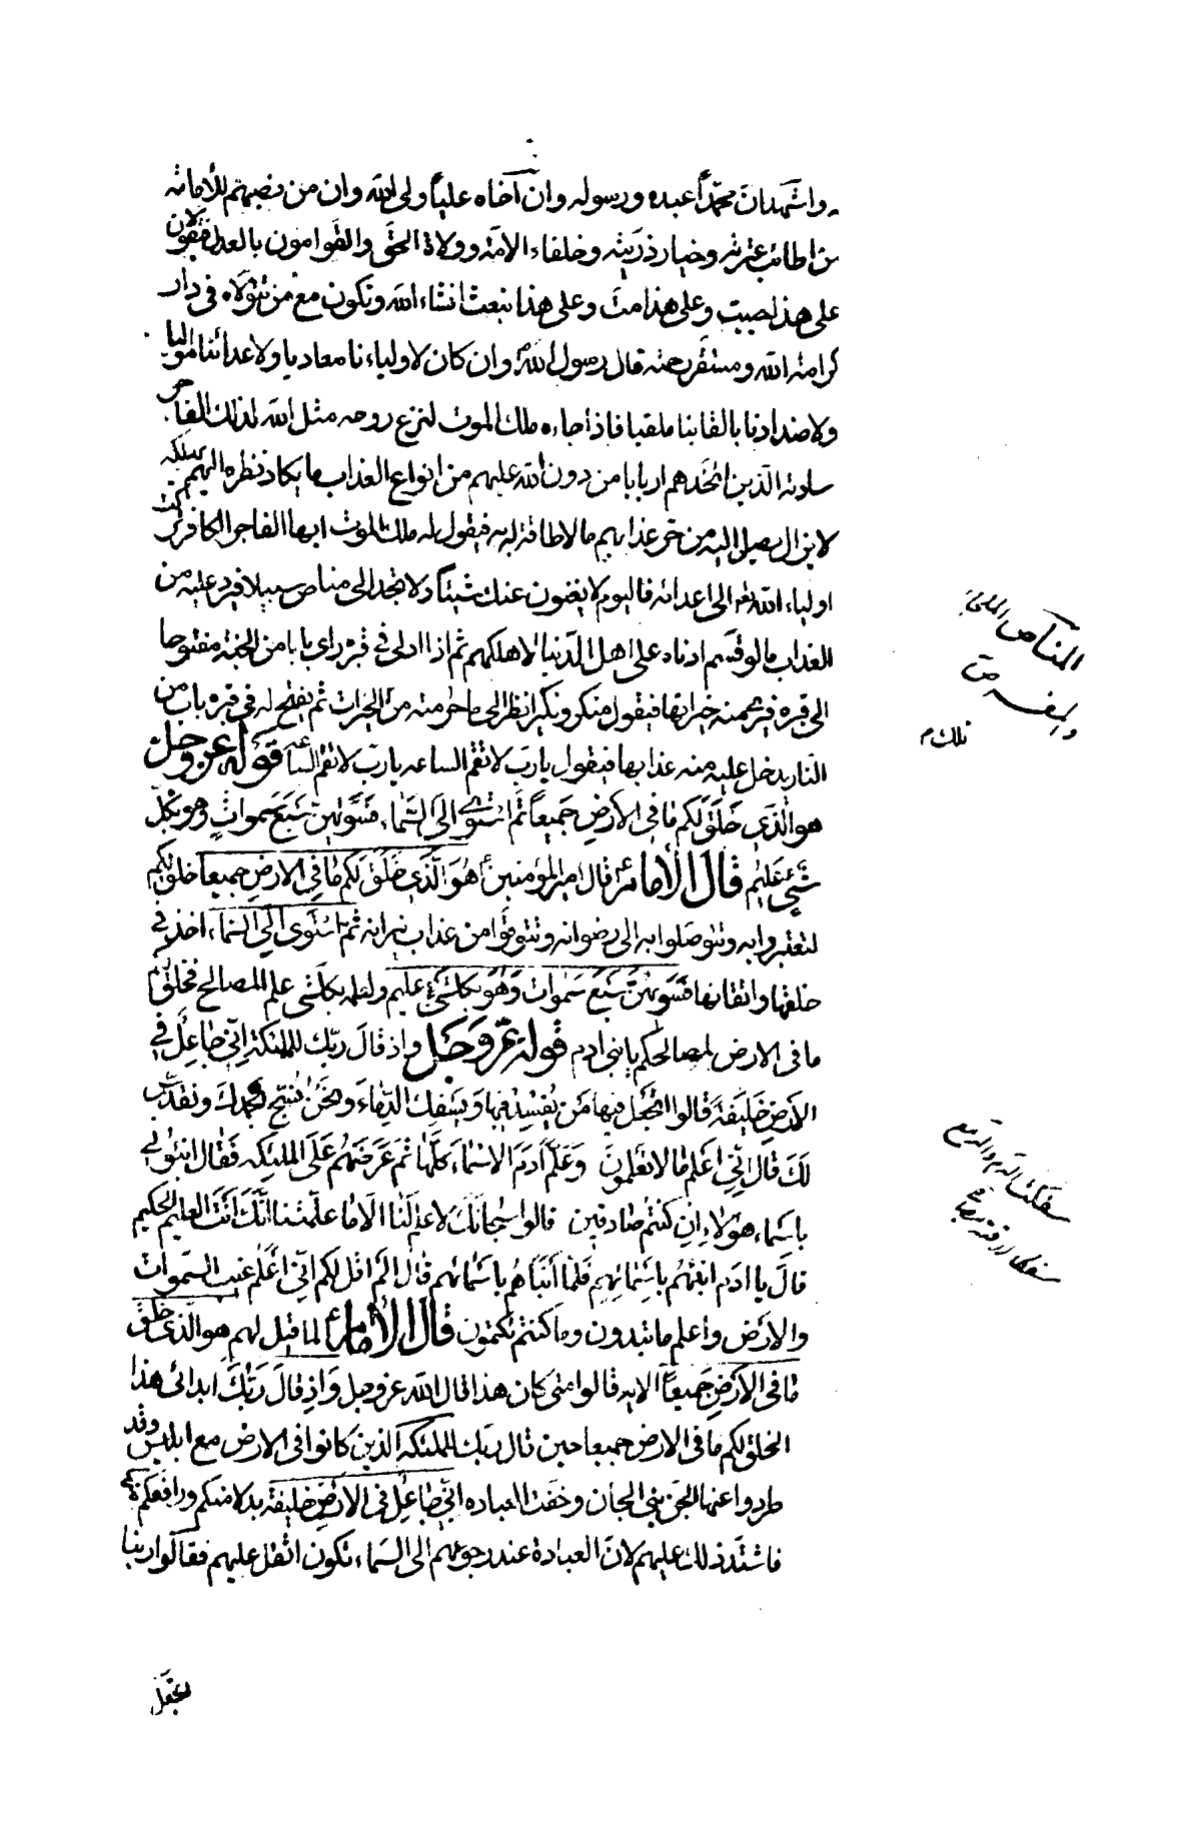 واشهد ان محمدا عبده ورسوله وان اخاه عليا ولى الله وان من نصبهم للأمامة
من اطائب عترته وخيار ذريته وخلفاء الامة وولاة الحق والقوامون بالعدل فيقولان
على هذا حييت وعلى هذا مت وعلى هذا تبعث انشاء الله وتكون مع من تتولاه فى دار
كرامة الله ومستقر رحمته قال رسول الله وان كان لاولياءنا معاديا ولاعدائنا مواليا
ولاضدادنا بالقابنا ملقبا فاذا جاءه ملك الموت لنزع روحه مثل الله لذلك الفاجر
سادته الذين اتخذهم اربابا من دون الله عليهم من انواع العذاب ما يكاد نظره اليهم يهلكه
لا يزال يصل اليه من حر عذابهم ما لا طاقة له به فيقول له ملك الموت ايها الفاجر الكافر تركت
اولياء الله الى اعدائه فاليوم لا يغنون عنك شيئا ولا تجد الى مناص سبيلا فيرد عليه من
العذاب ما لو قسم ادناه على اهل الدنيا لاهلكهم ثم اذا ادلى فى قبره راى بابا من الجنة مفتوحا
الى قبره فيرى منه خيراتها فيقول منكر ونكير انظر الى ما حرمته من الخيرات ثم يفتح له فى قبره باب من
النار يدخل عليه منه عذابها فيقول يا رب لا تقم الساعه يا رب لا تقم الساعه قوله عز وجل
هو الذى خلق لكم ما فى الارض جميعا ثم استوى الى السماء فسويهن سبع سموات وهو بكل
شىء عليم قال الأمام قال امير المؤمنين هو الذى خلق لكم ما فى الارض جميعا خلق لكم
لتعتبروا به وتتوصلوا به الى رضوانه وتتوقوا من عذاب نيرانه ثم استوى الى السماء اخذ فى
خلقها واتقانها فسويهن سبع سموات وهو بكل شىء عليم ولعلمه بكل شى علم المصالح فخلق لكم
ما فى الارض لمصالحكم يا بنى ادم قوله عز وجل واذ قال ربك للملئكة انى جاعل فى
الارض خليفة قالوا اتجعل فيها من يفسد فيها ويسفك الدماء ونحن نسبح بحمدك ونقدس
لك قال انى اعلم ما لا تعلمون وعلم ادم الاسماء كلها ثم عرضهم على الملئكه فقال انبئونى
باسماء هؤلاء ان كنتم صادقين قالوا سبحانك لا علم لنا الا ما علمتنا انك انت العليم الحكيم
قال يا ادم انبئهم باسمائهم فلما انبأهم باسمائهم قال الم اقل لكم انى اعلم غيب السموات
والارض واعلم ما تبدون وما كنتم تكتمون قال الأمام لما قيل لهم هو الذى خلق
ما فى الارض جميعا الايه قالوا متى كان هذا قال الله عز وجل واذ قال ربك ابدائى هذا
الخلق لكم ما فى الارض جميعا حين قال ربك للملئكه الذين كانوا فى الارض مع ابليس وقد
طردوا عنها الجن بنى الجان وخفت العباده انى جاعل فى الارض خليفة بدلا منكم ورافعكم
فاشتد ذلك عليهم لان العبادة عند رجوعهم الى السماء تكون اثقل عليهم فقالوا ربنا
المناص الملجأ
والمفر ص
سفكت الدم والدمع
اتجعل